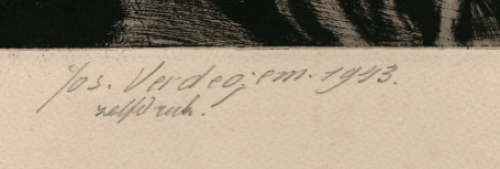 Jos. Verdegem. 1943.
zelfdruk.